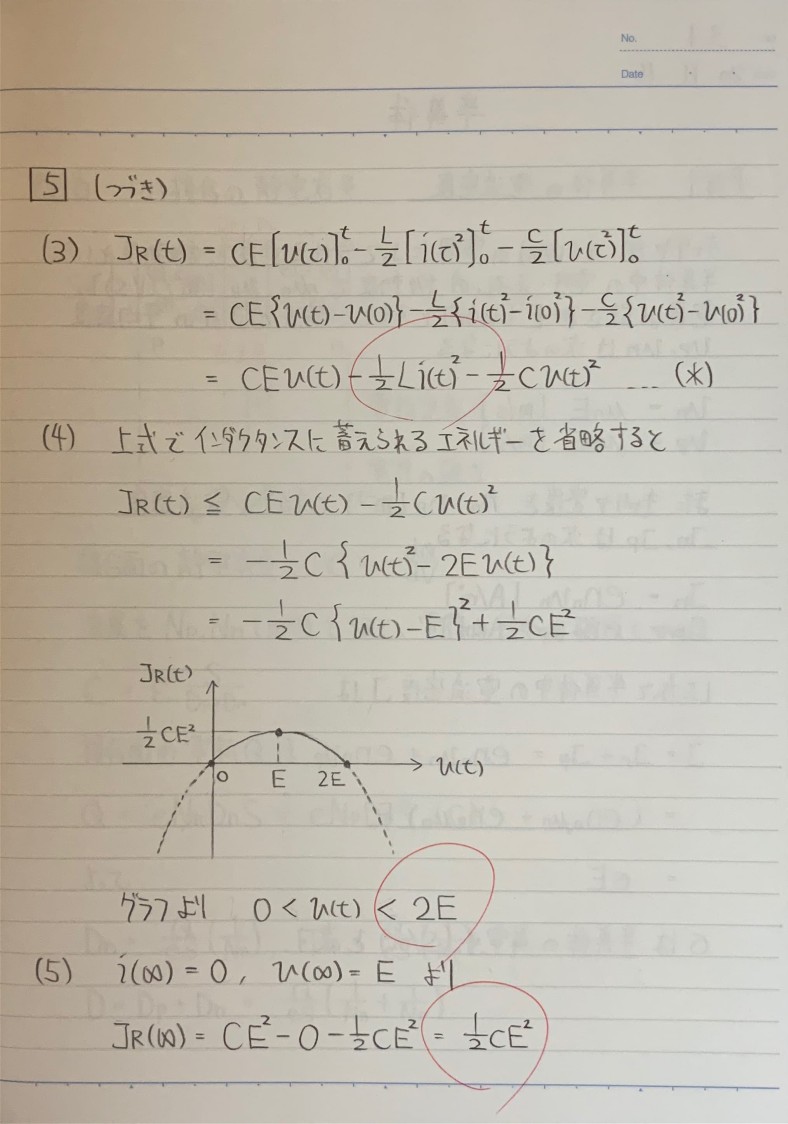 No.
Date
5 (つづき)
(3) J_R(t) = CE[v(τ)]₀ᵗ - L/2 [i(τ)²]₀ᵗ - C/2 [v(τ)²]₀ᵗ
= CE{v(t)-v(0)} - L/2 {i(t)²-i(0)²} - C/2 {v(t)²-v(0)²}
= CEv(t) - 1/2 Li(t)² - 1/2 Cv(t)² ... (*)
(4) 上式でインダクタンスに蓄えられるエネルギーを省略すると
J_R(t) ≦ CEv(t) - 1/2 Cv(t)²
= -1/2 C {v(t)² - 2Ev(t)}
= -1/2 C {v(t)-E}² + 1/2 CE²
J_R(t)
1/2 CE²
0 E 2E v(t)
グラフより 0 < v(t) < 2E
(5) i(∞) = 0, v(∞) = E より
J_R(∞) = CE² - 0 - 1/2 CE² = 1/2 CE²